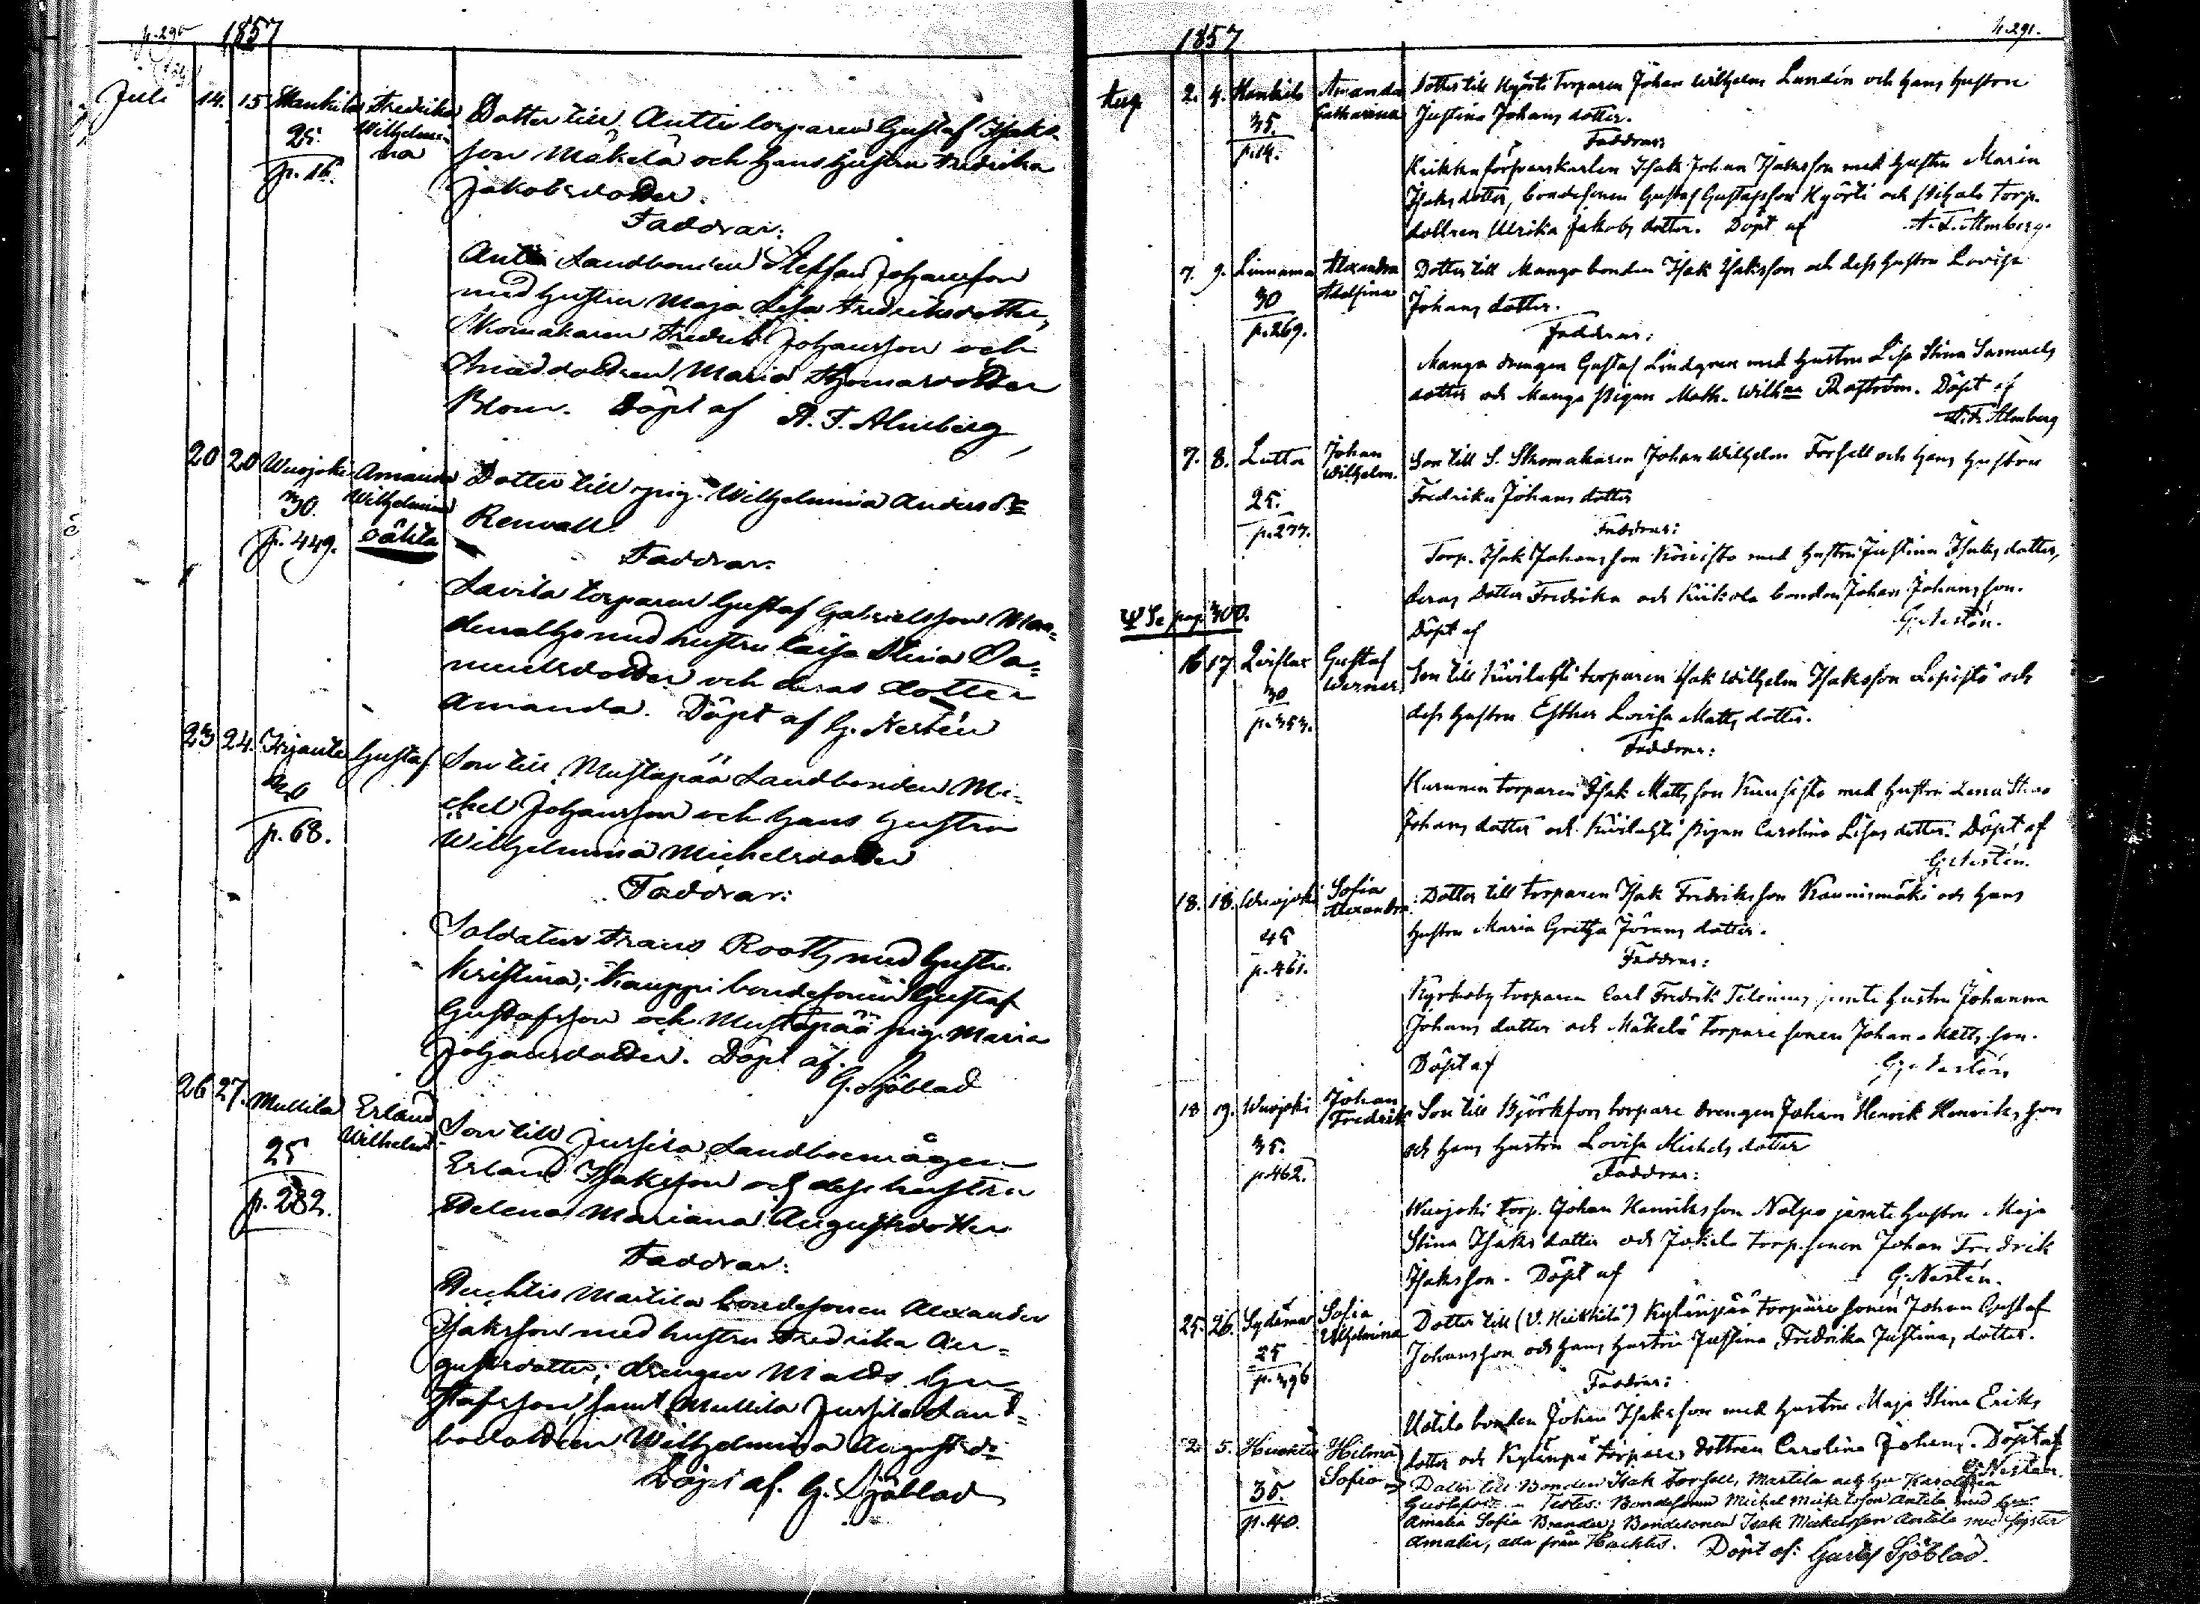 p. 290
1857
Juli 14. 15 Hankila Fredrika Dotter till Antti torparen Gustaf Isaks-
25. Wilhelmi- son Mäkelä och hans hustru Fredrika
p. 16. na Jakobsdotter.
Faddrar:
Antti Landbonden Steffan Johansson
med hustru Maja Lisa Fredriksdotter,
Skomakaren Fredrik Johansson och
Smeddottren Maria Thomasdotter
Blom. Döpt af A. F. Almberg
20 20 Wuojoki Amanda Dotter till pig. Wilhelmina Andersdr
30. Wilhelmina Renvall.
p. 449. oäkta
Faddrar.
Lavila torparen Gustaf Gabrielsson
med hustru Caisa Stina Sa-
muelsdotter och deras dotter
Amanda. Döpt af G. Nestén
23 24. Irjante Gustaf Son till Mustapää Landbonden Mi-
chel Johansson och hans hustru
p. 68. Wilhelmina Michelsdotter
Faddrar:
Soldaten Frans Rooth med hustru
Kristina; Kauppi bondesonen Gustaf
Gustafsson och Mustapää pig. Maria
Johansdotter. Döpt af.
G. Sjöblad
26 27. Mullila Erland Son till Jussila Landboemågen
25 Wilhelm Erland Isaksson och dess hustru
p. 282. Helena Mariana Augustsdotter
Faddrar:
Huchtis Martila bondesonen Alexander
Isaksson med hustru Fredrika Au-
gustsdotter; drengen Matts Gu-
stafsson, samt Mullila Jussila Land-
bodottren Wilhelmina Augustsdr
Döpt af. G. Sjöblad
1857
p. 291.
Aug. 2. 4. Hankila Amanda Dotter till Kyösti torparen Johan Wilhelm Lundén och hans hustru
35. Catharina Justina Johans dotter.
p. 14. Faddrar:
Isak Johan Isaksson med hustru Maria
Isaks dotter, bondesonen Gustaf Gustafsson Kyösti och torp.
dottren Ulrika Jakobs dotter. Döpt af A. F. Almberg.
7. 9. Linnamaa Alexandra Dotter till Manga bonden Isak Isaksson och dess hustru Lovisa
30 Adolfina Johans dotter.
p. 269. Faddrar:
Manga drengen Gustaf Lindgren med hustru Lisa Stina Samuels
dotter och Manga pigan Math. Wilhna Rafström. Döpt af
A. F. Almberg
7. 8. Lutta Johan Son till S. Skomakaren Johan Wilhelm Forsell och hans hustru
25. Wilhelm. Fredrika Johans dotter
p. 277. Faddrar:
Torp. Isak Johansson Koivisto med hustru Justina Isaks dotter,
deras dotter Fredrika och Kiikola bonden Johan Johansson.
Ψ Se pag. 300. Döpt af G. Nestén.
16 17. Qvistar Gustaf Son till Kivilahti torparen Isak Wilhelm Isaksson Lepistö och
30 Werner dess hustru Esther Lovisa Matts dotter.
p. 353. Faddrar:
torparen Isak Matts son Kuusisto med hustru Lena Stina
Johans dotter och Kivilahti pigan Carolina Lisas dotter. Döpt af
G. Nestén.
18. 18. Wuojoki Sofia Dotter till torparen Isak Fredriksson Kaunismäki och hans
45 Alexandra hustru Maria Gretha Jörans dotter.
p. 461. Faddrar:
Kyrkoby torparen Carl Fredrik Telenius jemte hustru Johanna
Johans dotter och Mäkelä torpare sonen Johan Matts son.
Döpt af G. Nestén
18 19. Wuojoki Johan Son till Björkfors torpare drengen Johan Henrik Henriks son
35. Fredrik och hans hustru Lovisa Michels dotter
p. 462. Faddrar:
Wuojoki torp. Johan Henriksson Nolpo jemte hustru Maja
Stina Isaks dotter och Jokela torp. sonen Johan Fredrik
Isaksson. Döpt af G. Nestén.
25. 26. Sydänmaa Sofia Dotter till (V. Heikkilä) Kylänpää torpare sonen Johan Gustaf
25 Wilhelmina Johansson och hans hustru Justina Fredrika Justinas dotter.
p. 396 Faddrar:
Uotila bonden Johan Isaksson med hustru Maja Stina Eriks
dotter och Kylänpää torpare dottren Carolina Johans. Döpt af
G. Nestén.
2. 5. Huchtis Hilma Dotter till Bonden Isak Forsell, Martila och hu Karolina
35. Sofia Gustafsdr. Testes: Bondesonen Michel Mickelsson Antila med hu
p. 40. Amalia Sofia Brander; Bondesonen Isak Mickelsson Antila med syster
Amalia, alla från Huchtis. Döpt af: Gustaf Sjöblad.